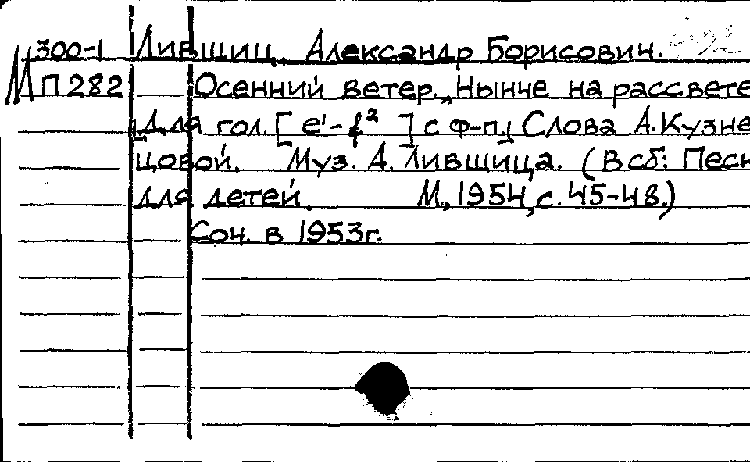 М 300-1 Лившиц, Александр Борисович.
П 282 Осенний ветер. „Нынче на рассвете
Для гол. [ e¹-f² ] с ф-п.; Слова А. Кузне
цовой. Муз. А. Лившица. (В сб: Песн
для детей. М., 1954, с. 45-48.)
Соч. в 1953г.